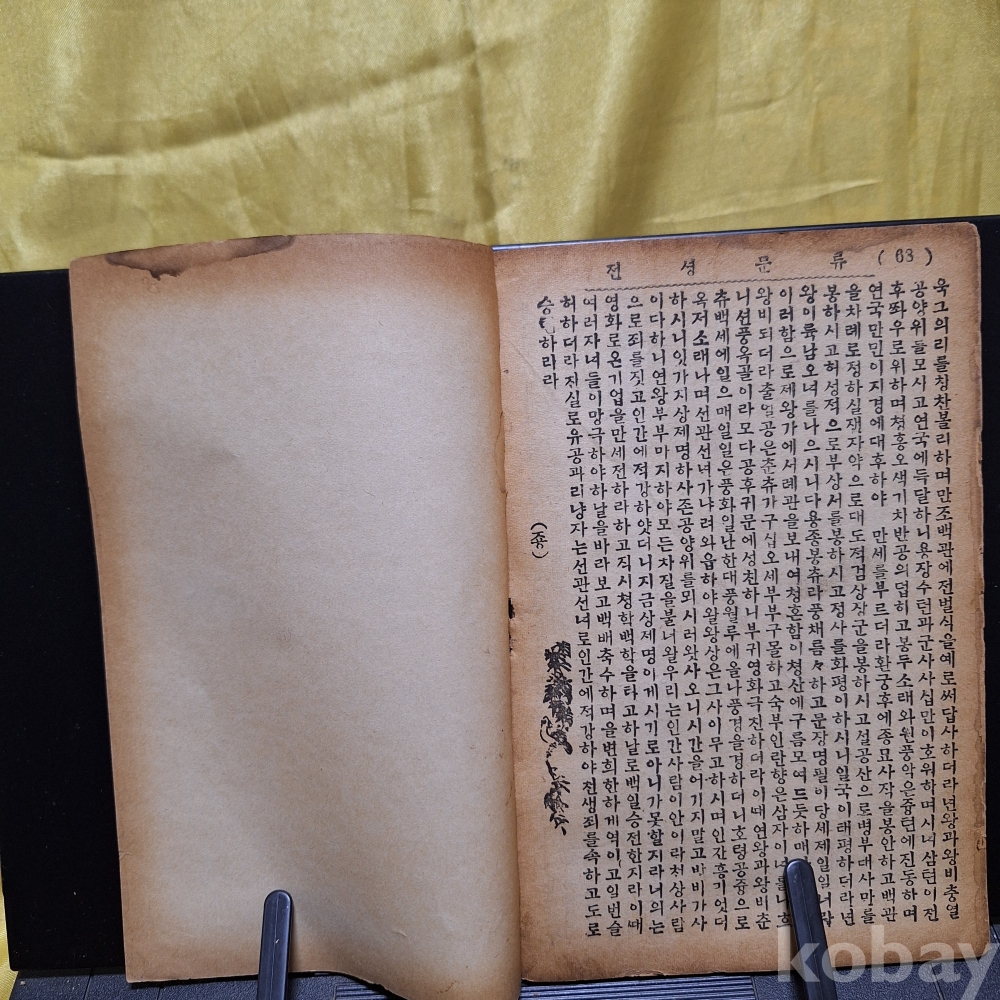 전 셩 문 류 (63)
욱그의리를칭찬불리하며만조백관에전벌식을예로써답사하더라년왕과왕비충열
공양위들모시고연국에득달하니용장수런과군사사십만이호위하며시녀삼턴이전
후쫘우로위하며쳥홍오색기치반공의덥히고봉두소래와원풍악은즁텬에진동하며
연국만민이지경에대후하야 만세를부르더라환궁후에종묘사작을봉안하고백관
을차례로정하실쟤자약으로대도적검상쟝군을봉하시고설공산으로병부대사만를
봉하시고허성적으로부상서를봉하시고정사를화평이하시니일국이래평하더라년
왕이륙남오녀를나으시니다용종봉츄라풍채름々하고문장명필이당세제일일너라
이러함으로제왕가에서례관을보내여쳥혼함이쳥산에구름모여드듯하매
왕비되더라출열공은춘츄가구십오세부부구몰하고숙부인란향은삼자이녀를
니션풍옥골이라모다공후귀문에성친하니부귀영화극진하더라이때연왕과왕비춘
츄백세에일으매일일은풍화일난한대풍월루에올나풍경을경하더니호령공즁으로
옥저소래나며선관선녀가나려와읍하야왈왕상은그사이무고하시며인간흥기엇더
하시니잇가지상제명하사존공양위를뫼시러왓사오니시간을어기지말고밧비가사
이다하니연왕부부마지하야모든자질을불너왈우리는인간사람이안이라쳐상사람
으로죄를짓고인간에적강하얏더니지금상제명이게시기로아니가못할지라너의는
영화로온기업을만세전하라하고직시쳥학백학을타고하날로백일승전한지라이때
여러자녀들이망극하야하날을바라보고백배축수하며을변희한하게역이고일번슬
허하더라진실로유공과리냥자는선관선녀로인간에적강하야쳔생죄를속하고도로
승 하라라
(죵)
kobay